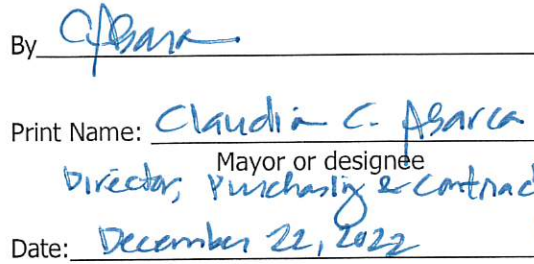 By CAbarca
Print Name: Claudia C. Abarca
Mayor or designee
Director, Purchasing & Contract
Date: December 22, 2022